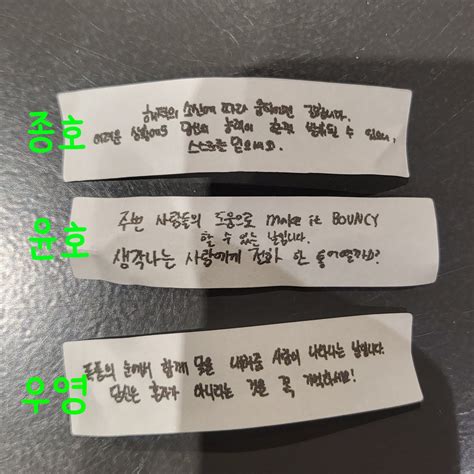 종호
해적의 소신에 따라 움직이면 길합니다.
어려운 상황에도 당신의 능력이 한껏 발휘될 수 있으니,
스스로를 믿으세요.
윤호
주변 사람들의 도움으로 make it BOUNCY
할 수 있는 날입니다.
생각나는 사람에게 전화 한 통 어떨까요?
우영
폭풍의 눈에서 함께 맞을 내어줄 사람이 나타나는 날입니다.
당신은 혼자가 아니라는 것을 꼭 기억하세요!